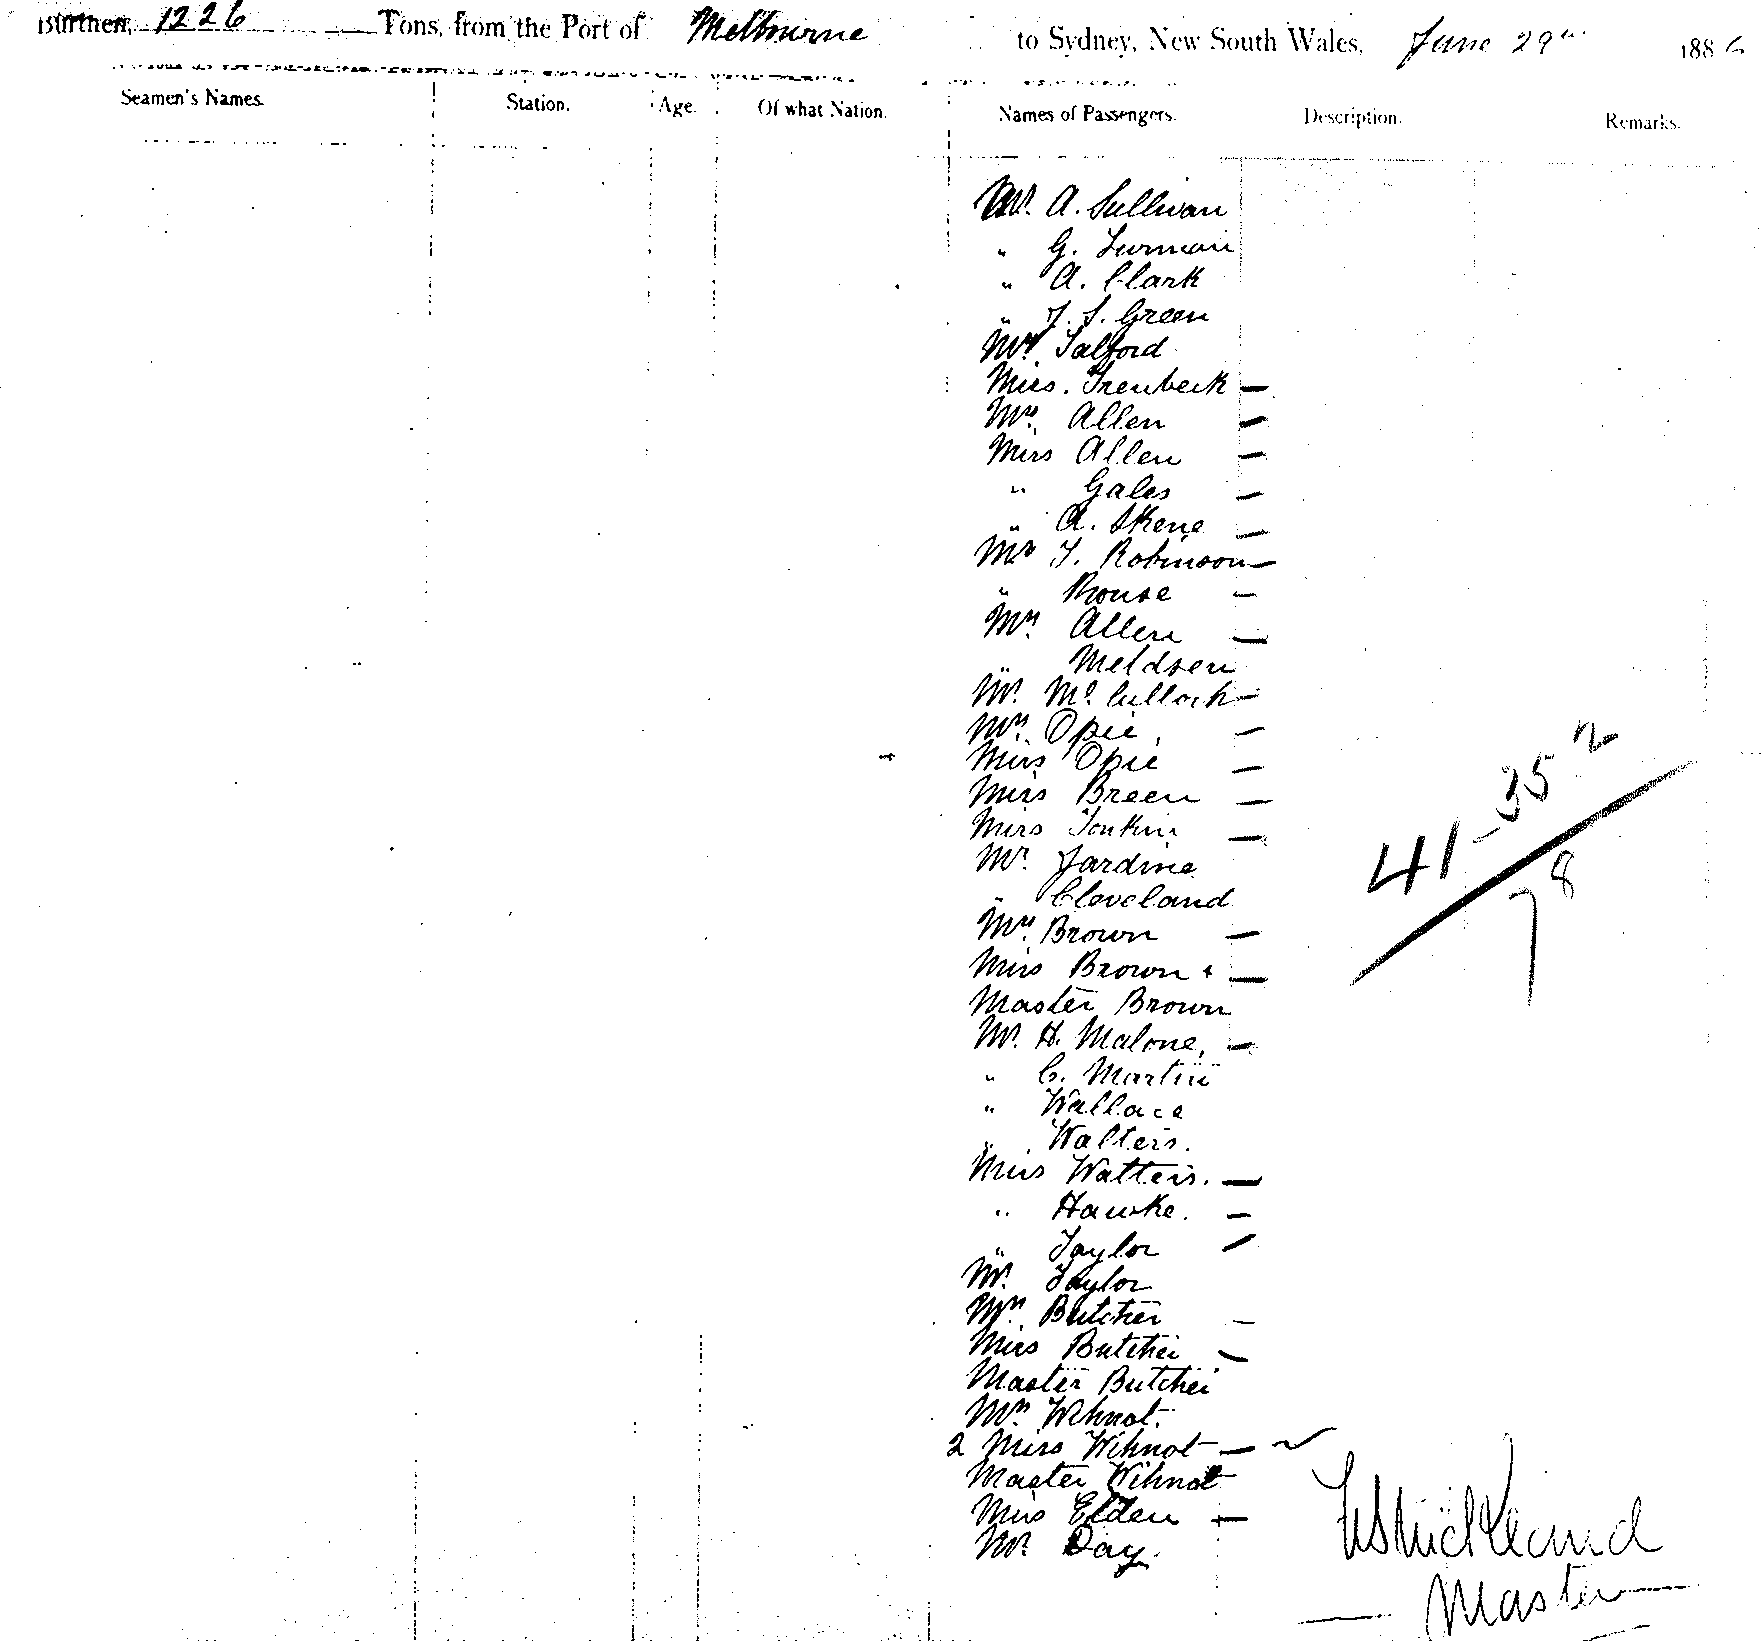 Burthen, 1226 Tons, from the Port of Melbourne to Sydney, New South Wales, June 29th 1886
Seamen's Names. Station. Age. Of what Nation. Names of Passengers. Description. Remarks.
Mr. A. Sullivan
" G.
" A. Clark
" J. S. Green
Mr. Talford
Miss. Trenbeck —
Mrs. Allen —
Miss Allen —
" Gales —
" A. Skene —
Mr T. Robinson —
" Rouse —
Mrs. Allen —
" Meldsen
Mr. McCulloch —
Mrs. Opie, —
Miss Opie —
Miss Breen —
Miss Jenkins —
Mr. Jardine
" Cleveland
Mrs. Brown —
Miss Brown + —
Master Brown
Mr. H. Malone, —
" C. Martin
" Wallace
" Walters.
Miss Watters. —
" Hawke. —
" Taylor —
Mr. Taylor
Mrs. Butcher —
Miss Butcher —
Master Butcher
Mrs. Wilmot.
2 Miss Wilmot —
Master Wilmot
Miss Elden —
Mr. Day.
41-35 2
78
Strickland
Master